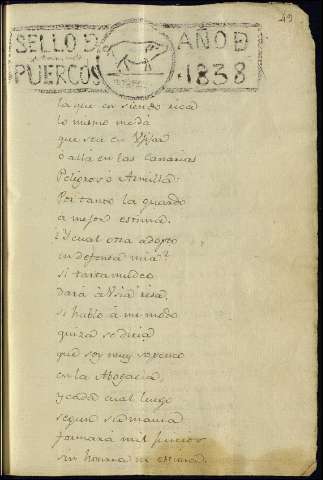 49
SELLO D AÑO D
PUERCOS 1838
la que en siendo rica
lo mismo me dá
que sea en
o allá en las Canarias
Peligros ó Armilla.
Por tanto la guardo
á mejor estima.
¿Y cual otra adopto
en defensa mia?
si tartamudeo
dará á Usia risa,
si hablo á mi modo
quizá se diria
que soy muy
en la Abogacia,
y cada cual luego
segun su mania
formará mil juicios
sin honra ni estima.